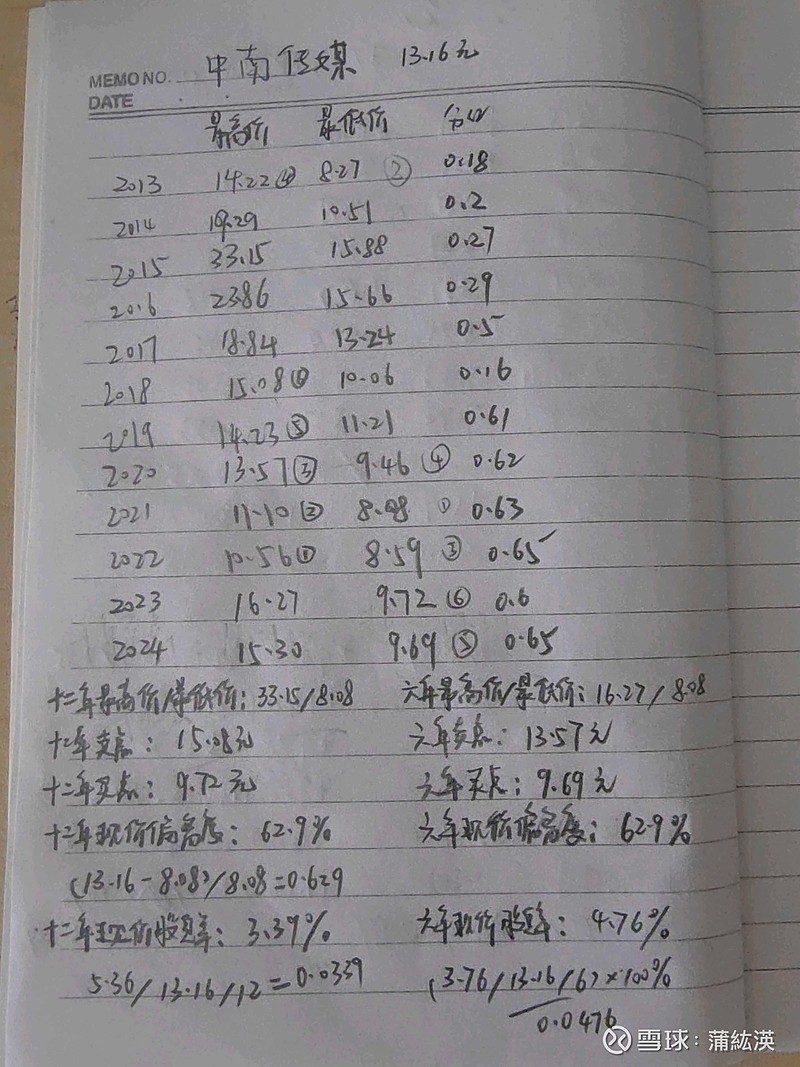 中南传媒 13.16元
MEMO NO.
DATE
最高价 最低价 分红
2013 14.22④ 8.27 ② 0.18
2014 19.29 10.51 0.2
2015 33.15 15.88 0.27
2016 23.86 15.66 0.29
2017 18.84 13.24 0.5
2018 15.08⑥ 10.06 0.16
2019 14.23⑤ 11.21 0.61
2020 13.57③ 9.46④ 0.62
2021 11.10② 8.08 ① 0.63
2022 10.56① 8.59 ③ 0.65
2023 16.27 9.72⑥ 0.6
2024 15.30 9.69⑤ 0.65
十二年最高价/最低价：33.15/8.08 六年最高价/最低价：16.27/8.08
十二年卖点：15.08元 六年卖点：13.57元
十二年买点：9.72元 六年买点：9.69元
十二年现价偏离度：62.9% 六年现价偏离度：62.9%
(13.16-8.08)/8.08=0.629
十二年现价股息率：3.39% 六年现价股息率：4.76%
5.36/13.16/12=0.0339 (3.76/13.16/6)×100%
0.0476
雪球：蒲紘渶